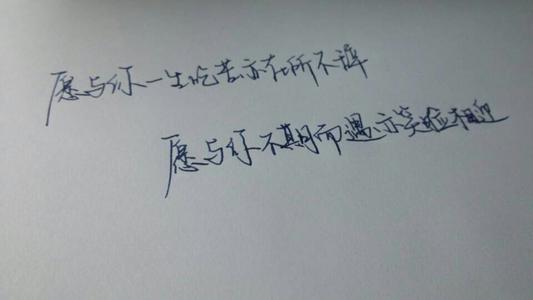 愿与你一生吃苦亦在所不辞
愿与你不期而遇亦笑脸相迎